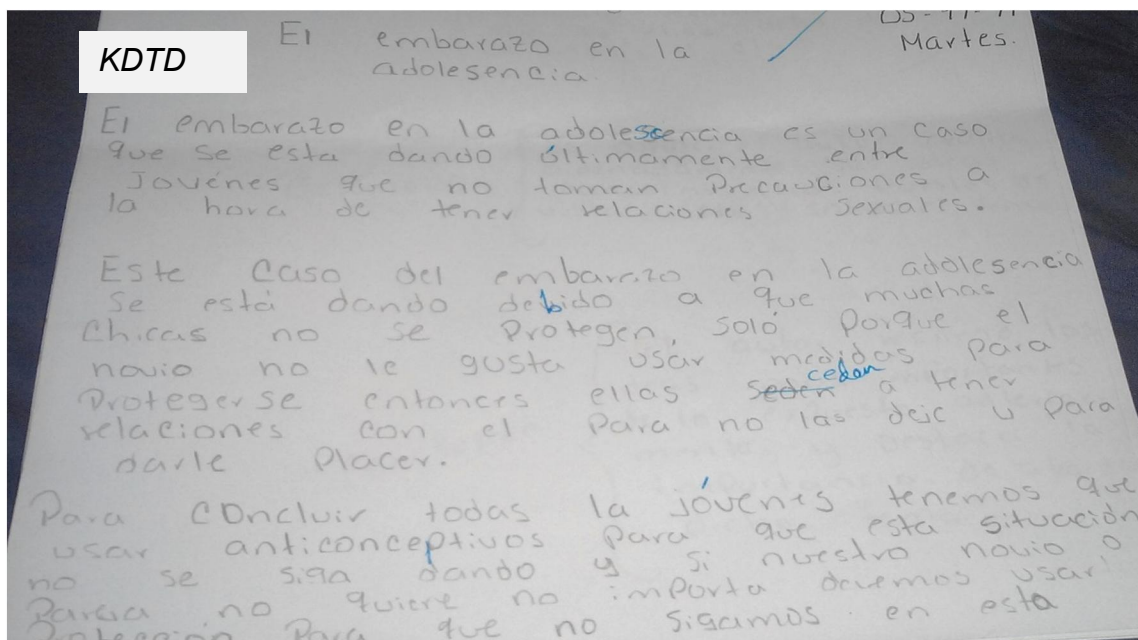 KDTD
Martes.
El embarazo en la
adolesencia.
El embarazo en la adolescencia es un caso
que se esta dando últimamente entre
Jovénes que no toman Precauciones a
la hora de tener relaciones sexuales.
Este Caso del embarazo en la adolesencia
se está dando debido a que muchas
Chicas no se Protegen, soló Porque el
novio no le gusta usar medidas Para
Protegerse entonces ellas seden ceden a tener
relaciones con el Para no las deje y Para
darle Placer.
Para Concluir todas la jóvenes tenemos que
usar anticonceptivos Para que esta situación
no se siga dando y si nuestro novio o
Pareja no quiere no importa devemos usar
Protección Para que no sigamos en esta